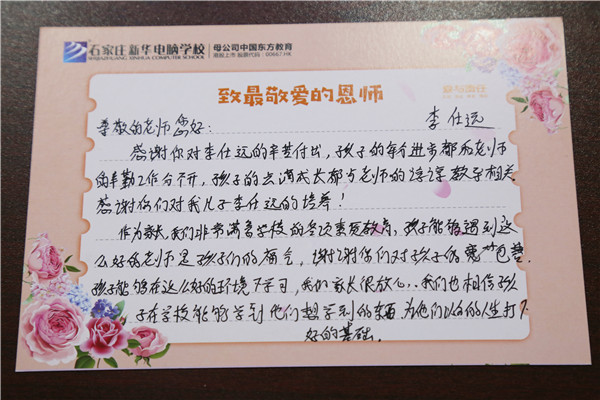 石家庄新华电脑学校 母公司中国东方教育
SHIJIAZHUANG XINHUA COMPUTER SCHOOL 港股上市 股票代码:00667.HK
致最敬爱的恩师
李仕远
尊敬的老师您好:
感谢你对李仕远的辛苦付出,孩子的每个进步都和老师
的辛勤工作分不开,孩子的点滴成长都与老师的谆谆教学相关
感谢你们对我儿子李仕远的培养!
作为家长我们非常满意学校的各项素质教育,孩子能够遇到这
么好的老师是孩子们的福气,谢谢你们对孩子的宽容包
孩子能够在这么好的环境下学习,我们家长很放心,我们也相信孩
子在学校能够学到他们想学到的东西,为他们以后的人生打下
好的基础.